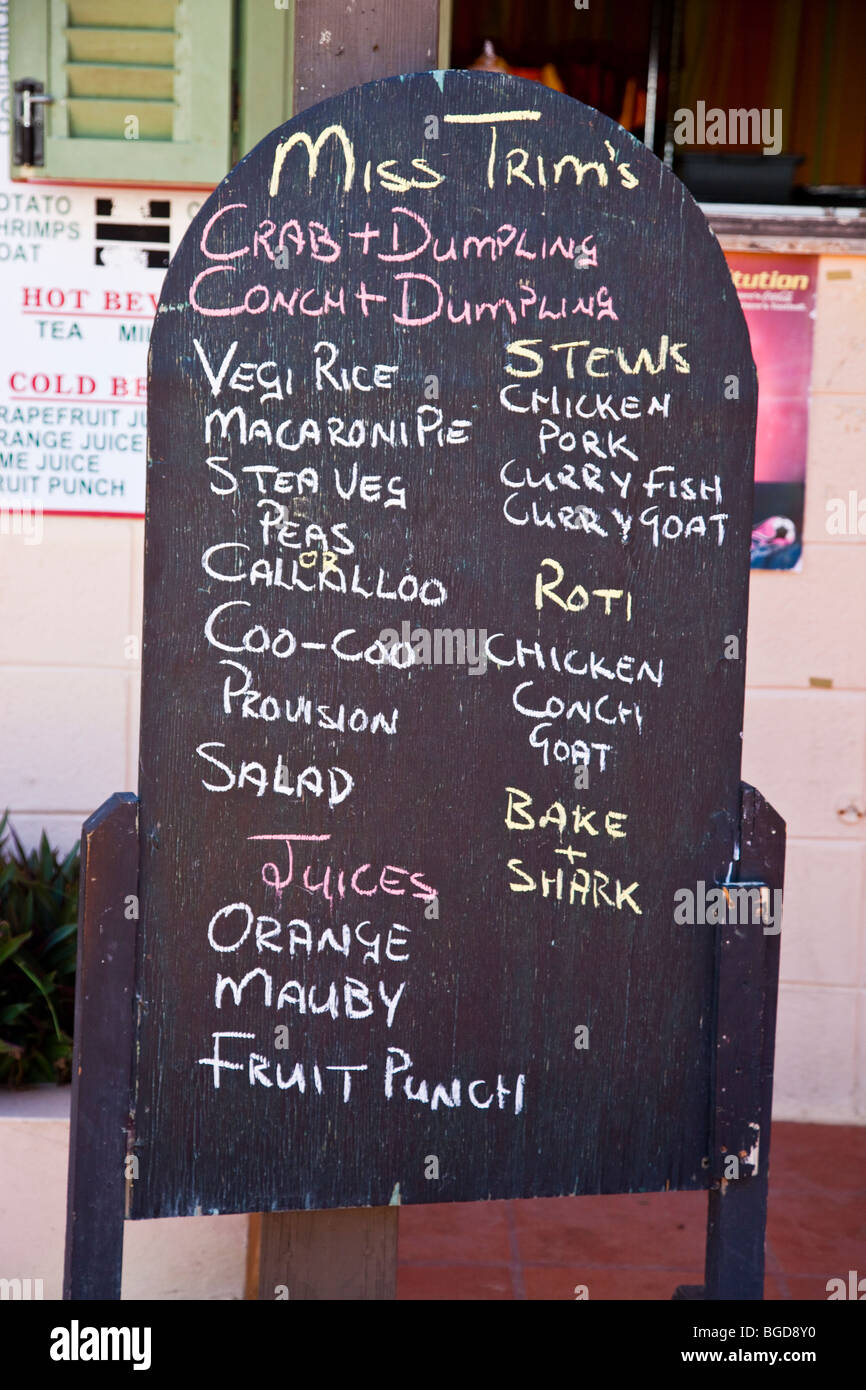 Miss Trim's
CRAB + DUMPLING
CONCH + DUMPLING
VEGI RICE
MACARONI PIE
STEA VEG
PEAS
OR
CALLALLOO
COO-COO
PROVISION
SALAD
JUICES
ORANGE
MAUBY
FRUIT PUNCH
STEWS
CHICKEN
PORK
CURRY FISH
CURRY GOAT
ROTI
CHICKEN
CONCH
GOAT
BAKE
+
SHARK
OTATO
HRIMPS
OAT
HOT BEV
TEA MIL
COLD BE
RAPEFRUIT JU
RANGE JUICE
ME JUICE
RUIT PUNCH
itution
alamy
alamy
Image ID: BGD8Y0
www.alamy.com